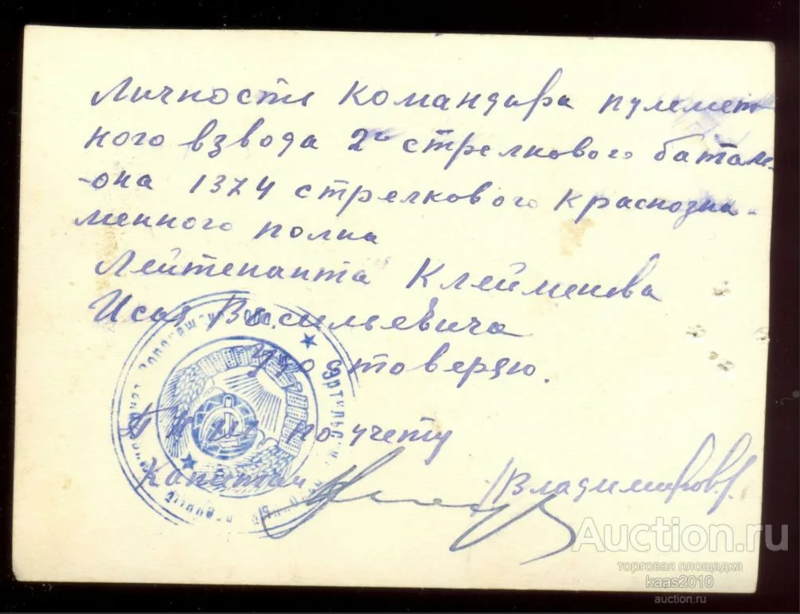 Личности командира пулемет
ного взвода 2го стрелкового баталь-
-она 1324 стрелкового Краснозна-
менного полка
Лейтенанта Клейменова
Исая Васильевича
удостоверяю.
по учету
Капитан /Владимиров/
Auction.ru
торговая площадка
kaas2010
auction.ru